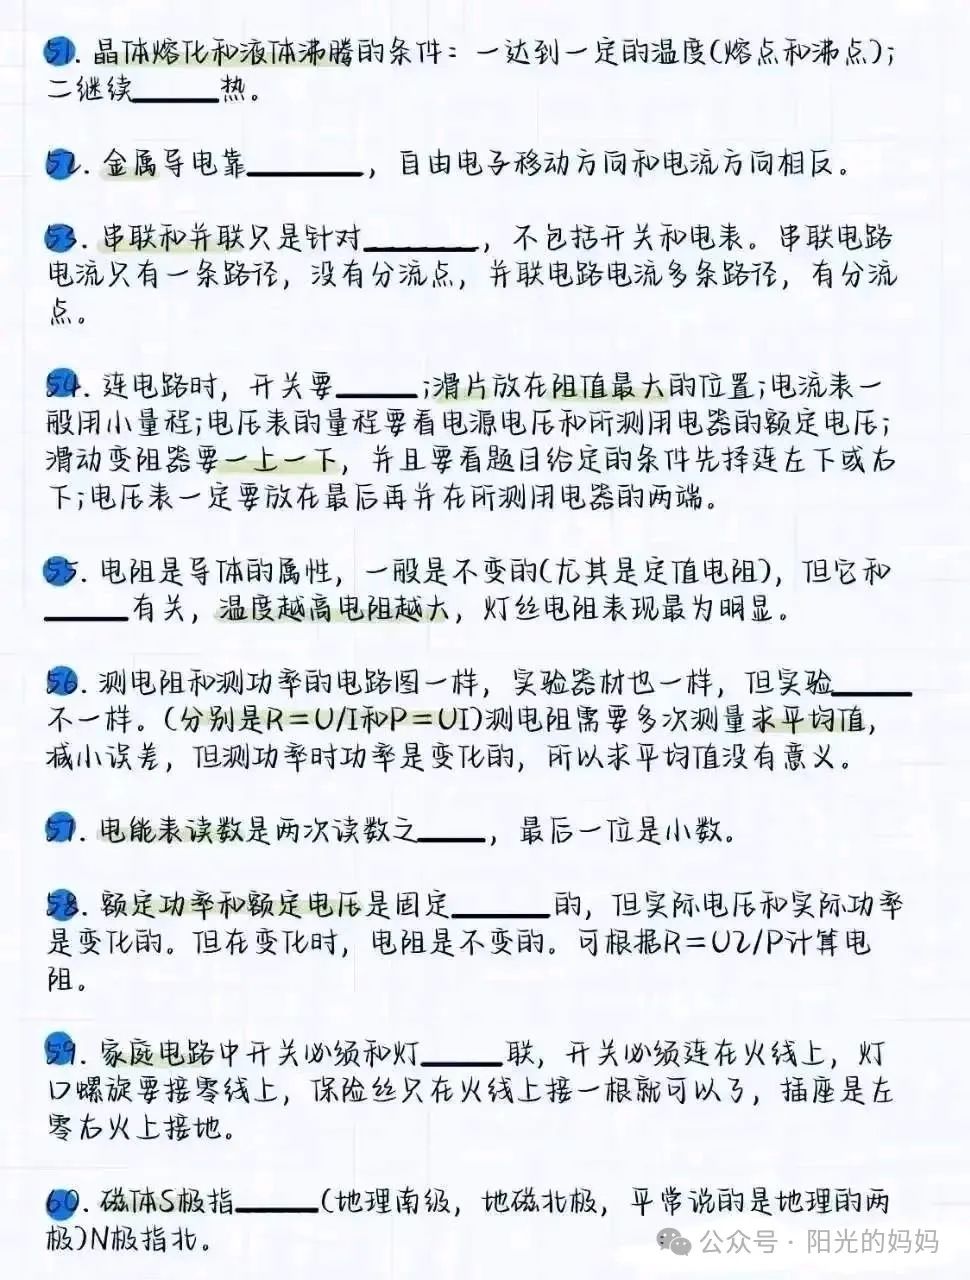 51. 晶体熔化和液体沸腾的条件：一达到一定的温度(熔点和沸点)；
二继续______热。
52. 金属导电靠________，自由电子移动方向和电流方向相反。
53. 串联和并联只是针对________，不包括开关和电表。串联电路
电流只有一条路径，没有分流点，并联电路电流多条路径，有分流
点。
54. 连电路时，开关要______;滑片放在阻值最大的位置;电流表一
般用小量程;电压表的量程要看电源电压和所测用电器的额定电压；
滑动变阻器要一上一下，并且要看题目给定的条件先择连左下或右
下;电压表一定要放在最后再并在所测用电器的两端。
55. 电阻是导体的属性，一般是不变的(尤其是定值电阻)，但它和
______有关，温度越高电阻越大，灯丝电阻表现最为明显。
56. 测电阻和测功率的电路图一样，实验器材也一样，但实验______
不一样。(分别是R＝U/I和P＝UI)测电阻需要多次测量求平均值，
减小误差，但测功率时功率是变化的，所以求平均值没有意义。
57. 电能表读数是两次读数之_____，最后一位是小数。
58. 额定功率和额定电压是固定_______的，但实际电压和实际功率
是变化的。但在变化时，电阻是不变的。可根据R＝U2/P计算电
阻。
59. 家庭电路中开关必须和灯______联，开关必须连在火线上，灯
口螺旋要接零线上，保险丝只在火线上接一根就可以了，插座是左
零右火上接地。
60. 磁体S极指______(地理南级，地磁北极，平常说的是地理的两
极)N极指北。
公众号·阳光的妈妈